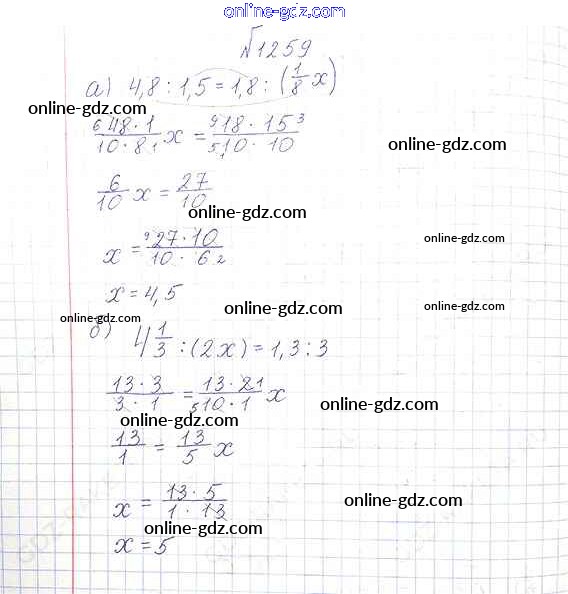 www.online-gdz.com
№1259
а) 4,8 : 1,5 = 1,8 : (1/8 x)
online-gdz.com
6 48·1 / 10·8 1 x = 9 18·15 3 / 5 10·10
online-gdz.com
6/10 x = 27/10
online-gdz.com
x = 9 27·10 / 10·6 2
online-gdz.com
x = 4,5
online-gdz.com
online-gdz.com
online-gdz.com
б) 4 1/3 : (2x) = 1,3 : 3
13·3 / 3·1 = 13·2 1 / 5 10·1 x
online-gdz.com
online-gdz.com
13/1 = 13/5 x
x = 13·5 / 1·13
online-gdz.com
online-gdz.com
x = 5